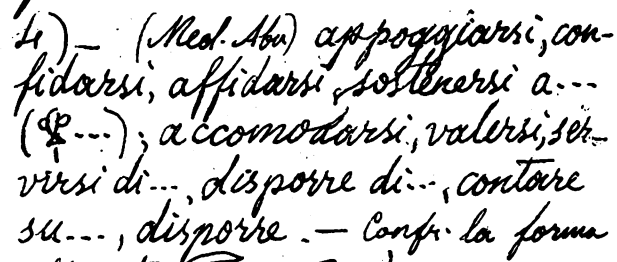 4)_ (Med. Abu) appoggiarsi, con-
fidarsi, affidarsi, sostenersi a...
(...); accomodarsi, valersi, ser-
virsi di..., disporre di..., contare
su..., disporre. — Confr. la forma